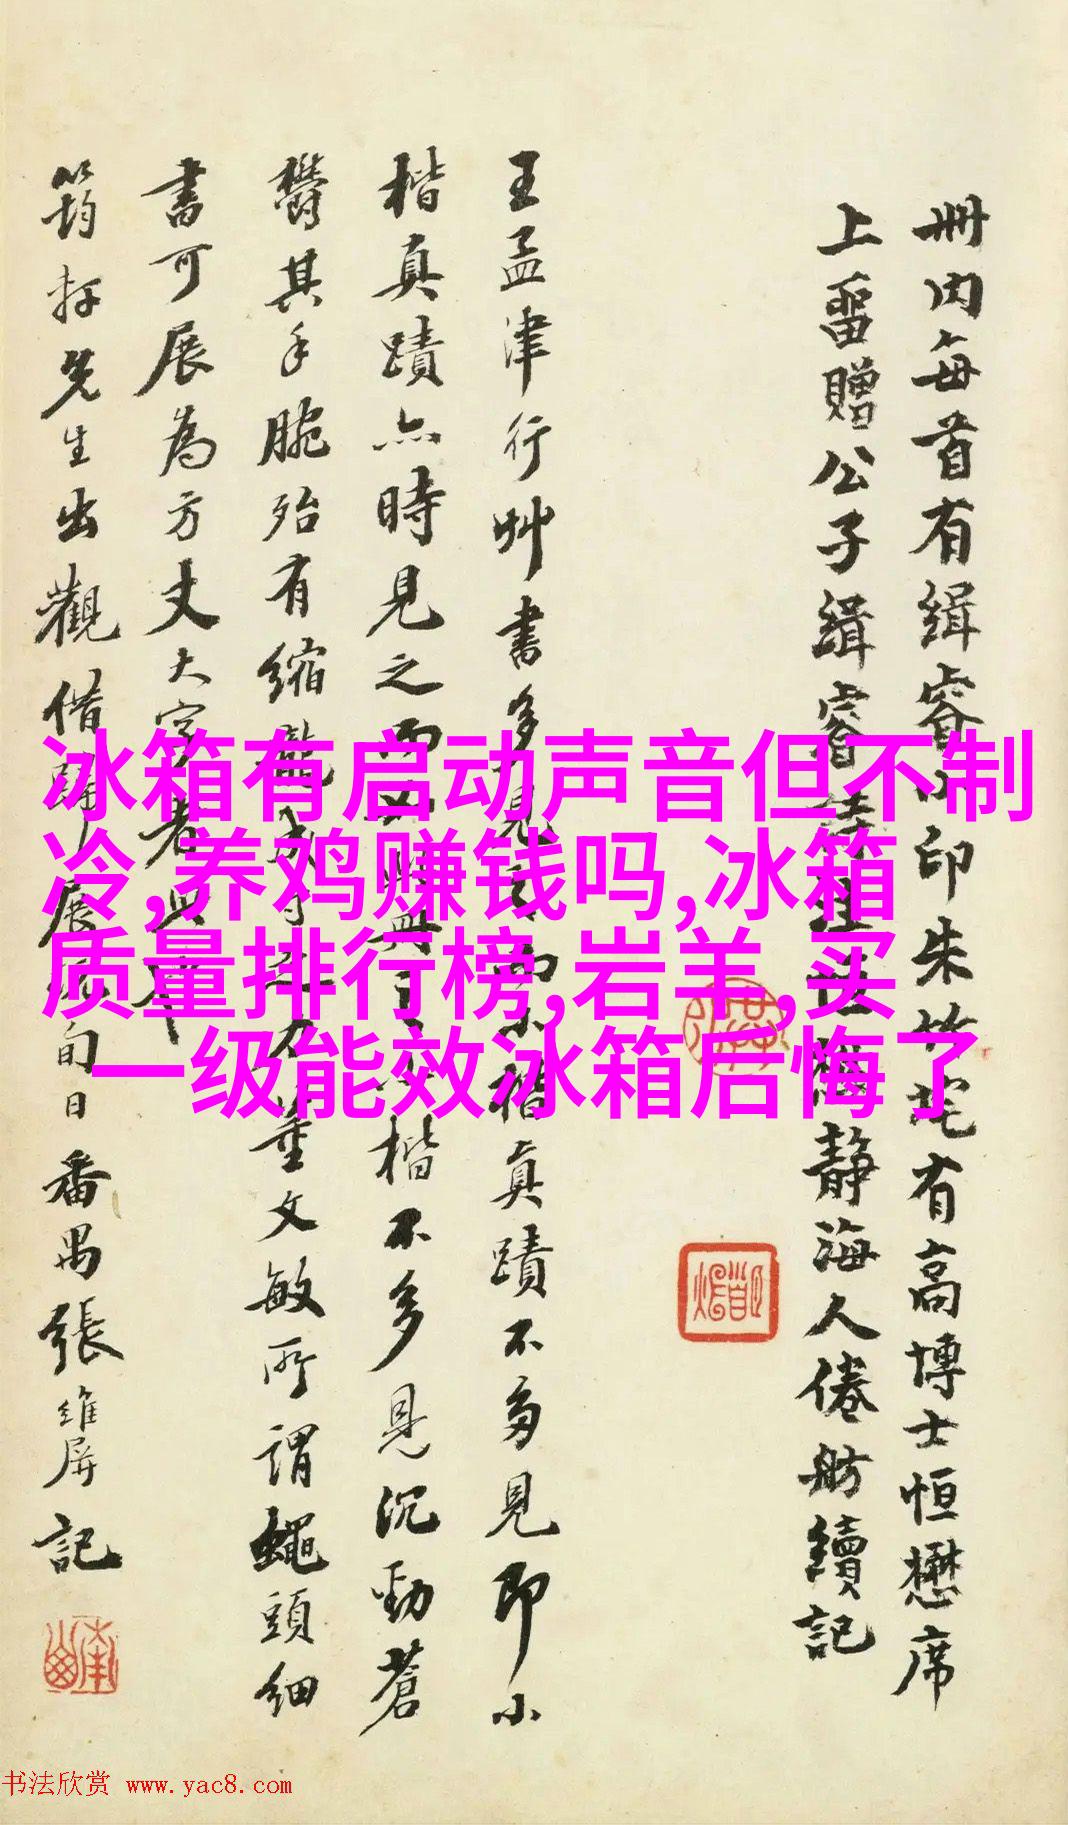 冊内每首有緝睿小印朱竹垞有高博士恒懋席
上畱贈公子緝睿詩
静海人倦舫續記
王孟津行艸書多見之而小楷真蹟不多見即小
楷真蹟亦時見之而
楷不多見沉勁蒼
鬱其手腕殆有縮
董文敏所謂蠅頭細
書可展為方丈大字者
筠 先生出觀借歸展
旬日番禺張維屏記
冰箱有启动声音但不制
冷,养鸡赚钱吗,冰箱
质量排行榜,岩羊,买
一级能效冰箱后悔了
书法欣赏 www.yac8.com